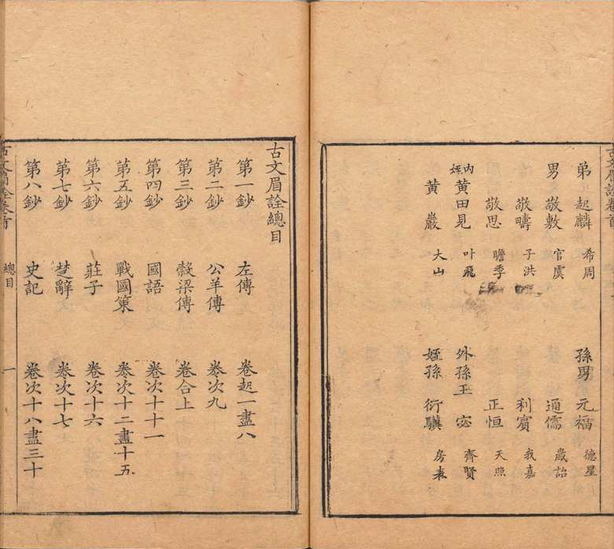 弟 起麟 希周 孫男 元福 德星
男 敬敷 官虞 通儒 歲詒
敬疇 子洪 利賓 我嘉
敬思 瞻季 正恒 天照
内姪 黄田見 叶飛 外孫王 宓 齊賢
黄 巖 大山 姪孫 衍騏 房表
古文眉詮總目
第一鈔 左傳 卷起一盡八
第二鈔 公羊傳 卷次九
第三鈔 穀梁傳 卷合上
第四鈔 國語 卷次十十一
第五鈔 戰國策 卷次十二盡十五
第六鈔 莊子 卷次十六
第七鈔 楚辭 卷次十七
第八鈔 史記 卷次十八盡三十
總目 一